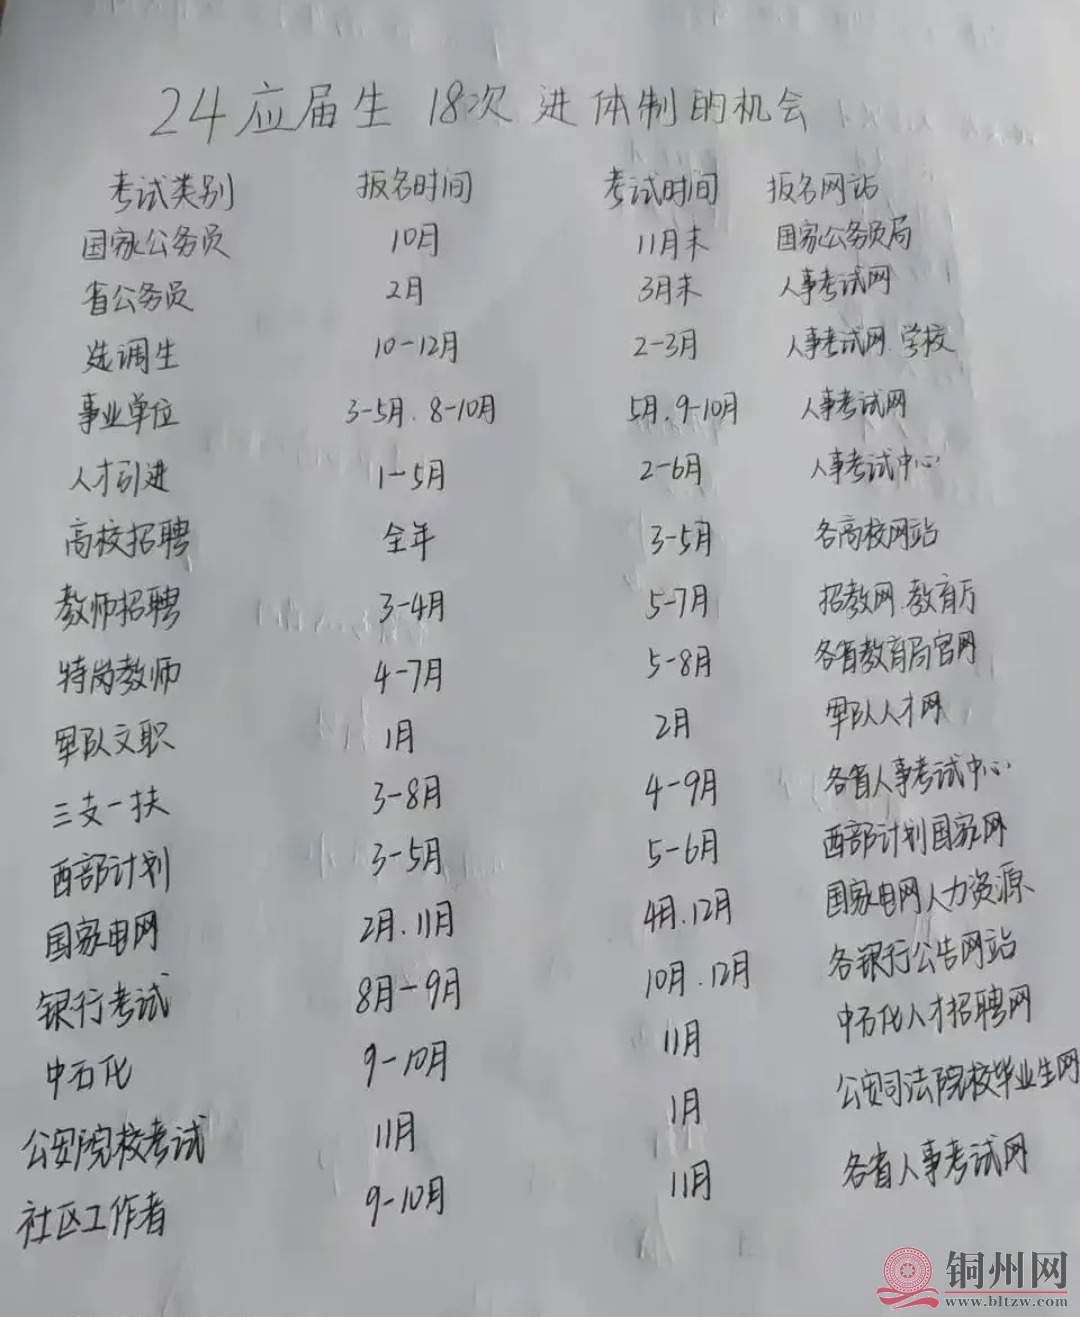 24应届生 18次 进体制的机会
考试类别 报名时间 考试时间 报名网站
国家公务员 10月 11月末 国家公务员局
省公务员 2月 3月末 人事考试网
选调生 10-12月 2-3月 人事考试网.学校
事业单位 3-5月.8-10月 5月.9-10月 人事考试网
人才引进 1-5月 2-6月 人事考试中心
高校招聘 全年 3-5月 各高校网站
教师招聘 3-4月 5-7月 招教网.教育厅
特岗教师 4-7月 5-8月 各省教育局官网
军队文职 1月 2月 军队人才网
三支一扶 3-8月 4-9月 各省人事考试中心
西部计划 3-5月 5-6月 西部计划国家网
国家电网 2月.11月 4月.12月 国家电网人力资源
银行考试 8月-9月 10月.12月 各银行公告网站
中石化 9-10月 11月 中石化人才招聘网
公安院校考试 11月 1月 公安司法院校毕业生网
社区工作者 9-10月 11月 各省人事考试网
铜州网
www.bltzw.com